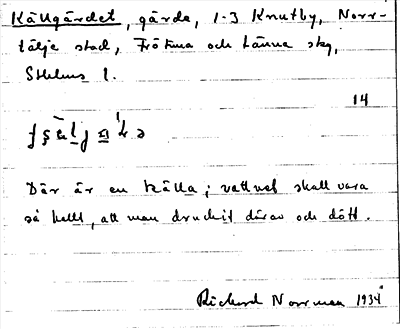 Källgärdet, gärde, 1-3 Knutby, Norr-
tälje stad, Frötuna och Länna skg,
Sthlms l.
14
Där är en källa; vattnet skall vara
så kallt, att man druckit därav och dött.
Richard Norrman 1934